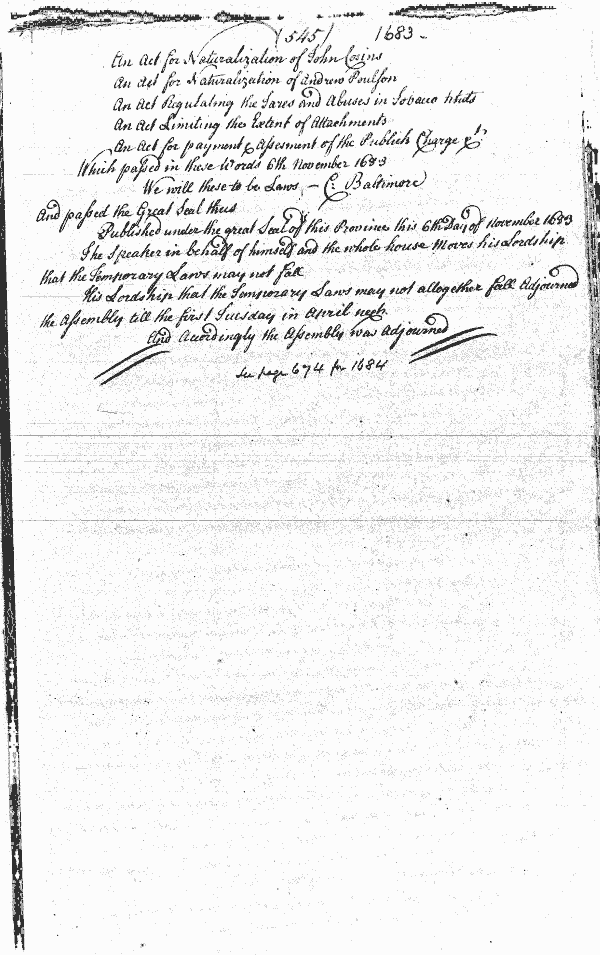 (545) 1683-
An Act for Naturalization of John Cosins
An Act for Naturalization of Andrew Poulson
An Act Regulating the Tares and Abuses in Tobacco hhds
An Act Limiting the Extent of Attachments
An Act for payment & Assesment of the Publick Charge &c
Which passed in these Words 6th November 1683
We will these to be Laws, - C: Baltimore
And passed the Great Seal thus
Published under the great Seal of this Province this 6th Day of November 1683
The Speaker in behalf of himself and the whole house Moves his Lordship
that the Temporary Laws may not fall
His Lordship that the Temporary Laws may not altogether fall Adjourned
the Assembly till the first Tuesday in April next.
And Accordingly the Assembly was Adjourned
See page 674 for 1684